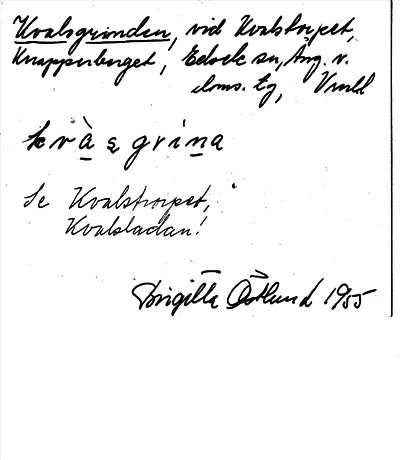 Kvalsgrinden, vid Kvalstorpet,
Knapperberget, Edsele sn, Ång. v.
doms. tg, Vnld
kvàsgrina
Se Kvalstorpet,
Kvalsladan!
Birgitta Östlund 1955